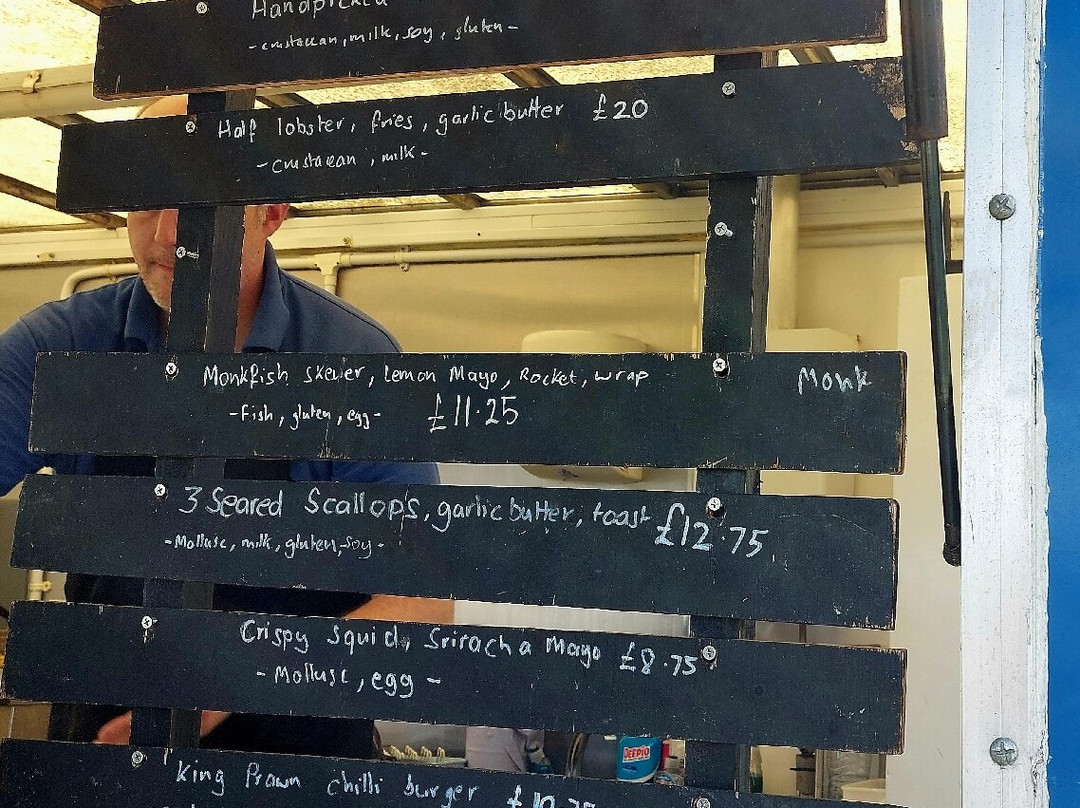 Handpicked
- crustacean, milk, soy, gluten -
Half lobster, fries, garlic butter £20
- crustacean, milk -
Monkfish skewer, Lemon Mayo, Rocket, wrap
Monk
- Fish, gluten, egg - £11.25
3 Seared Scallop's, garlic butter, toast £12.75
- Mollusc, milk, gluten, soy -
Crispy squid, Sriracha Mayo £8.75
- Mollusc, egg -
King Prawn chilli burger
DEEPIO